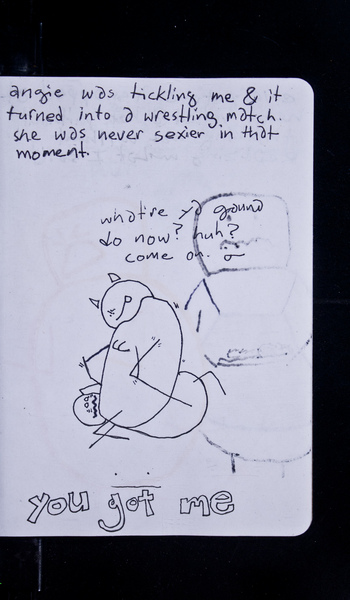 angie was tickling me & it
turned into a wrestling match.
she was never sexier in that
moment.
what're ya gound
do now? huh?
come on.
you got me